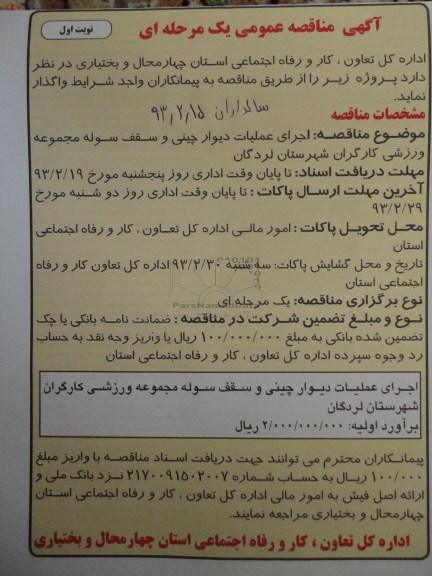 آگهی مناقصه عمومی یک مرحله ای
نوبت اول
اداره کل تعاون ، کار و رفاه اجتماعی استان چهارمحال و بختیاری در نظر
دارد پروژه زیر را از طریق مناقصه به پیمانکاران واجد شرایط واگذار
نماید.
۹۳٫۲٫۱۵
مشخصات مناقصه
موضوع مناقصه: اجرای عملیات دیوار چینی و سقف سوله مجموعه
ورزشی کارگران شهرستان لردگان
مهلت دریافت اسناد: تا پایان وقت اداری روز پنجشنبه مورخ ۹۳/۲/۱۹
آخرین مهلت ارسال پاکات : تا پایان وقت اداری روز دو شنبه مورخ
۹۳/۲/۲۹
محل تحویل پاکات : امور مالی اداره کل تعاون ، کار و رفاه اجتماعی
استان
تاریخ و محل گشایش پاکات: سه شنبه ۹۳/۲/۳۰ اداره کل تعاون کار و رفاه
اجتماعی استان
نوع برگزاری مناقصه: یک مرحله ای
نوع و مبلغ تضمین شرکت در مناقصه : ضمانت نامه بانکی یا چک
تضمین شده بانکی به مبلغ ۱۰۰/۰۰۰/۰۰۰ ریال یا واریز وجه نقد به حساب
رد وجوه سپرده اداره کل تعاون ، کار و رفاه اجتماعی استان
اجرای عملیات دیوار چینی و سقف سوله مجموعه ورزشی کارگران
شهرستان لردگان
برآورد اولیه: ۲/۰۰۰/۰۰۰/۰۰۰ ریال
پیمانکاران محترم می توانند جهت دریافت اسناد مناقصه با واریز مبلغ
۱۰۰/۰۰۰ ریال به حساب شماره ۲۱۷۰۰۹۱۵۰۲۰۰۷ نزد بانک ملی و
ارائه اصل فیش به امور مالی اداره کل تعاون ، کار و رفاه اجتماعی استان
چهارمحال و بختیاری مراجعه نمایند.
اداره کل تعاون ، کار و رفاه اجتماعی استان چهارمحال و بختیاری